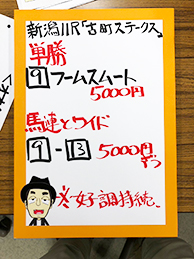 新潟11R「古町ステークス」
単勝
9 フームスムート
5000円
馬連とワイド
9-13 5000円
ずつ
※好調持続、